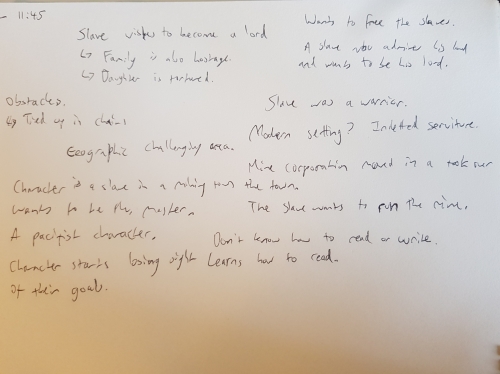 - 11:45
Slave wishes to become a lord
↳ Family is also hostage.
↳ Daughter is tortured.
Wants to free the slaves.
A slave who admires his lord
and wants to be his lord.
Obstacles.
↳ Tied up in chains
Geographic challenging area.
Slave was a warrior.
Modern setting? Indebted serviture.
Mine corporation moved in a took over
Character is a slave in a mining town the town.
wants to be the master.
The slave wants to run the mine.
A pacifist character.
Don't know how to read or write.
Character starts losing sight
of their goals.
Learns how to read.